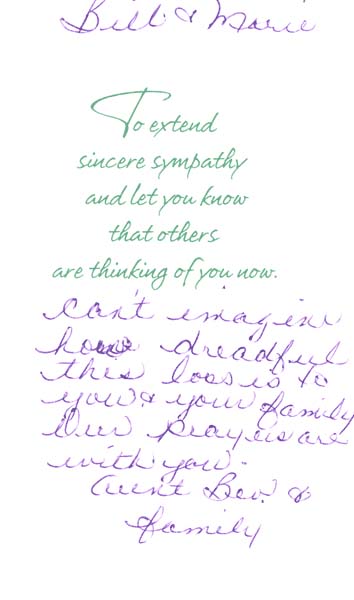 Bill & Marie
To extend
sincere sympathy
and let you know
that others
are thinking of you now.
can't imagine
how dreadful
this loss is to
you & your family
Our prayers are
with you.
Aunt Bev. &
family